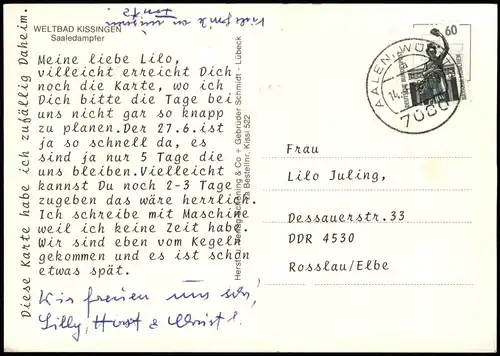 WELTBAD KISSINGEN
Saaledampfer
Meine liebe Lilo,
villeicht erreicht Dich
noch die Karte, wo ich
Dich bitte die Tage bei
uns nicht gar so knapp
zu planen.Der 27.6.ist
ja so schnell da, es
sind ja nur 5 Tage die
uns bleiben.Vielleicht
kannst Du noch 2-3 Tage
zugeben das wäre herrlich.
Ich schreibe mit Maschine
weil ich keine Zeit habe.
Wir sind eben vom Kegeln
gekommen und es ist schon
etwas spät.
Wir freuen uns sehr,
Lilly, Horst &
Diese Karte habe ich zufällig Daheim.
Schöning & Co + Gebrüder Schmidt - Lübeck
Bestellnr. Kissi 522
60
AALEN
14.
7080
Frau
Lilo Juling,
Dessauerstr.33
DDR 4530
Rosslau/Elbe